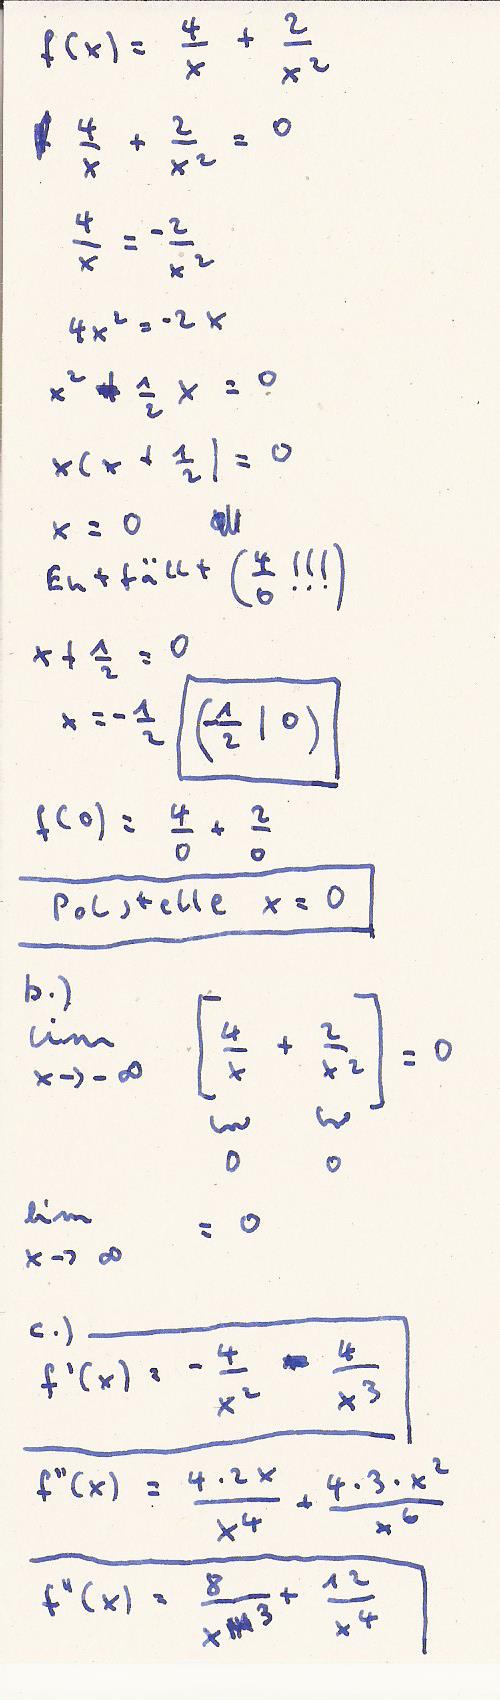 f(x) = 4/x + 2/x²
4/x + 2/x² = 0
4/x = -2/x²
4x² = -2x
x² + 1/2 x = 0
x(x + 1/2) = 0
x = 0
Entfällt (4/0 !!!)
x + 1/2 = 0
x = -1/2 (-1/2 | 0)
f(0) = 4/0 + 2/0
Polstelle x = 0
b.)
lim x→-∞ [4/x + 2/x²] = 0
0 0
lim x→∞ = 0
c.)
f'(x) = -4/x² - 4/x³
f"(x) = 4·2x/x⁴ + 4·3·x²/x⁶
f"(x) = 8/x³ + 12/x⁴